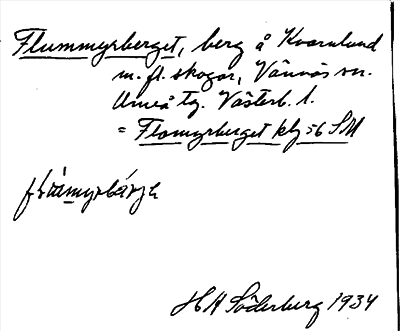 Flummyrberget, berg å Kvarnlund
m. fl. skogar, Vännäs sn.
Umeå tg. Västerb. l.
= Flomyrberget kbl 56 SM

H A Söderberg 1934